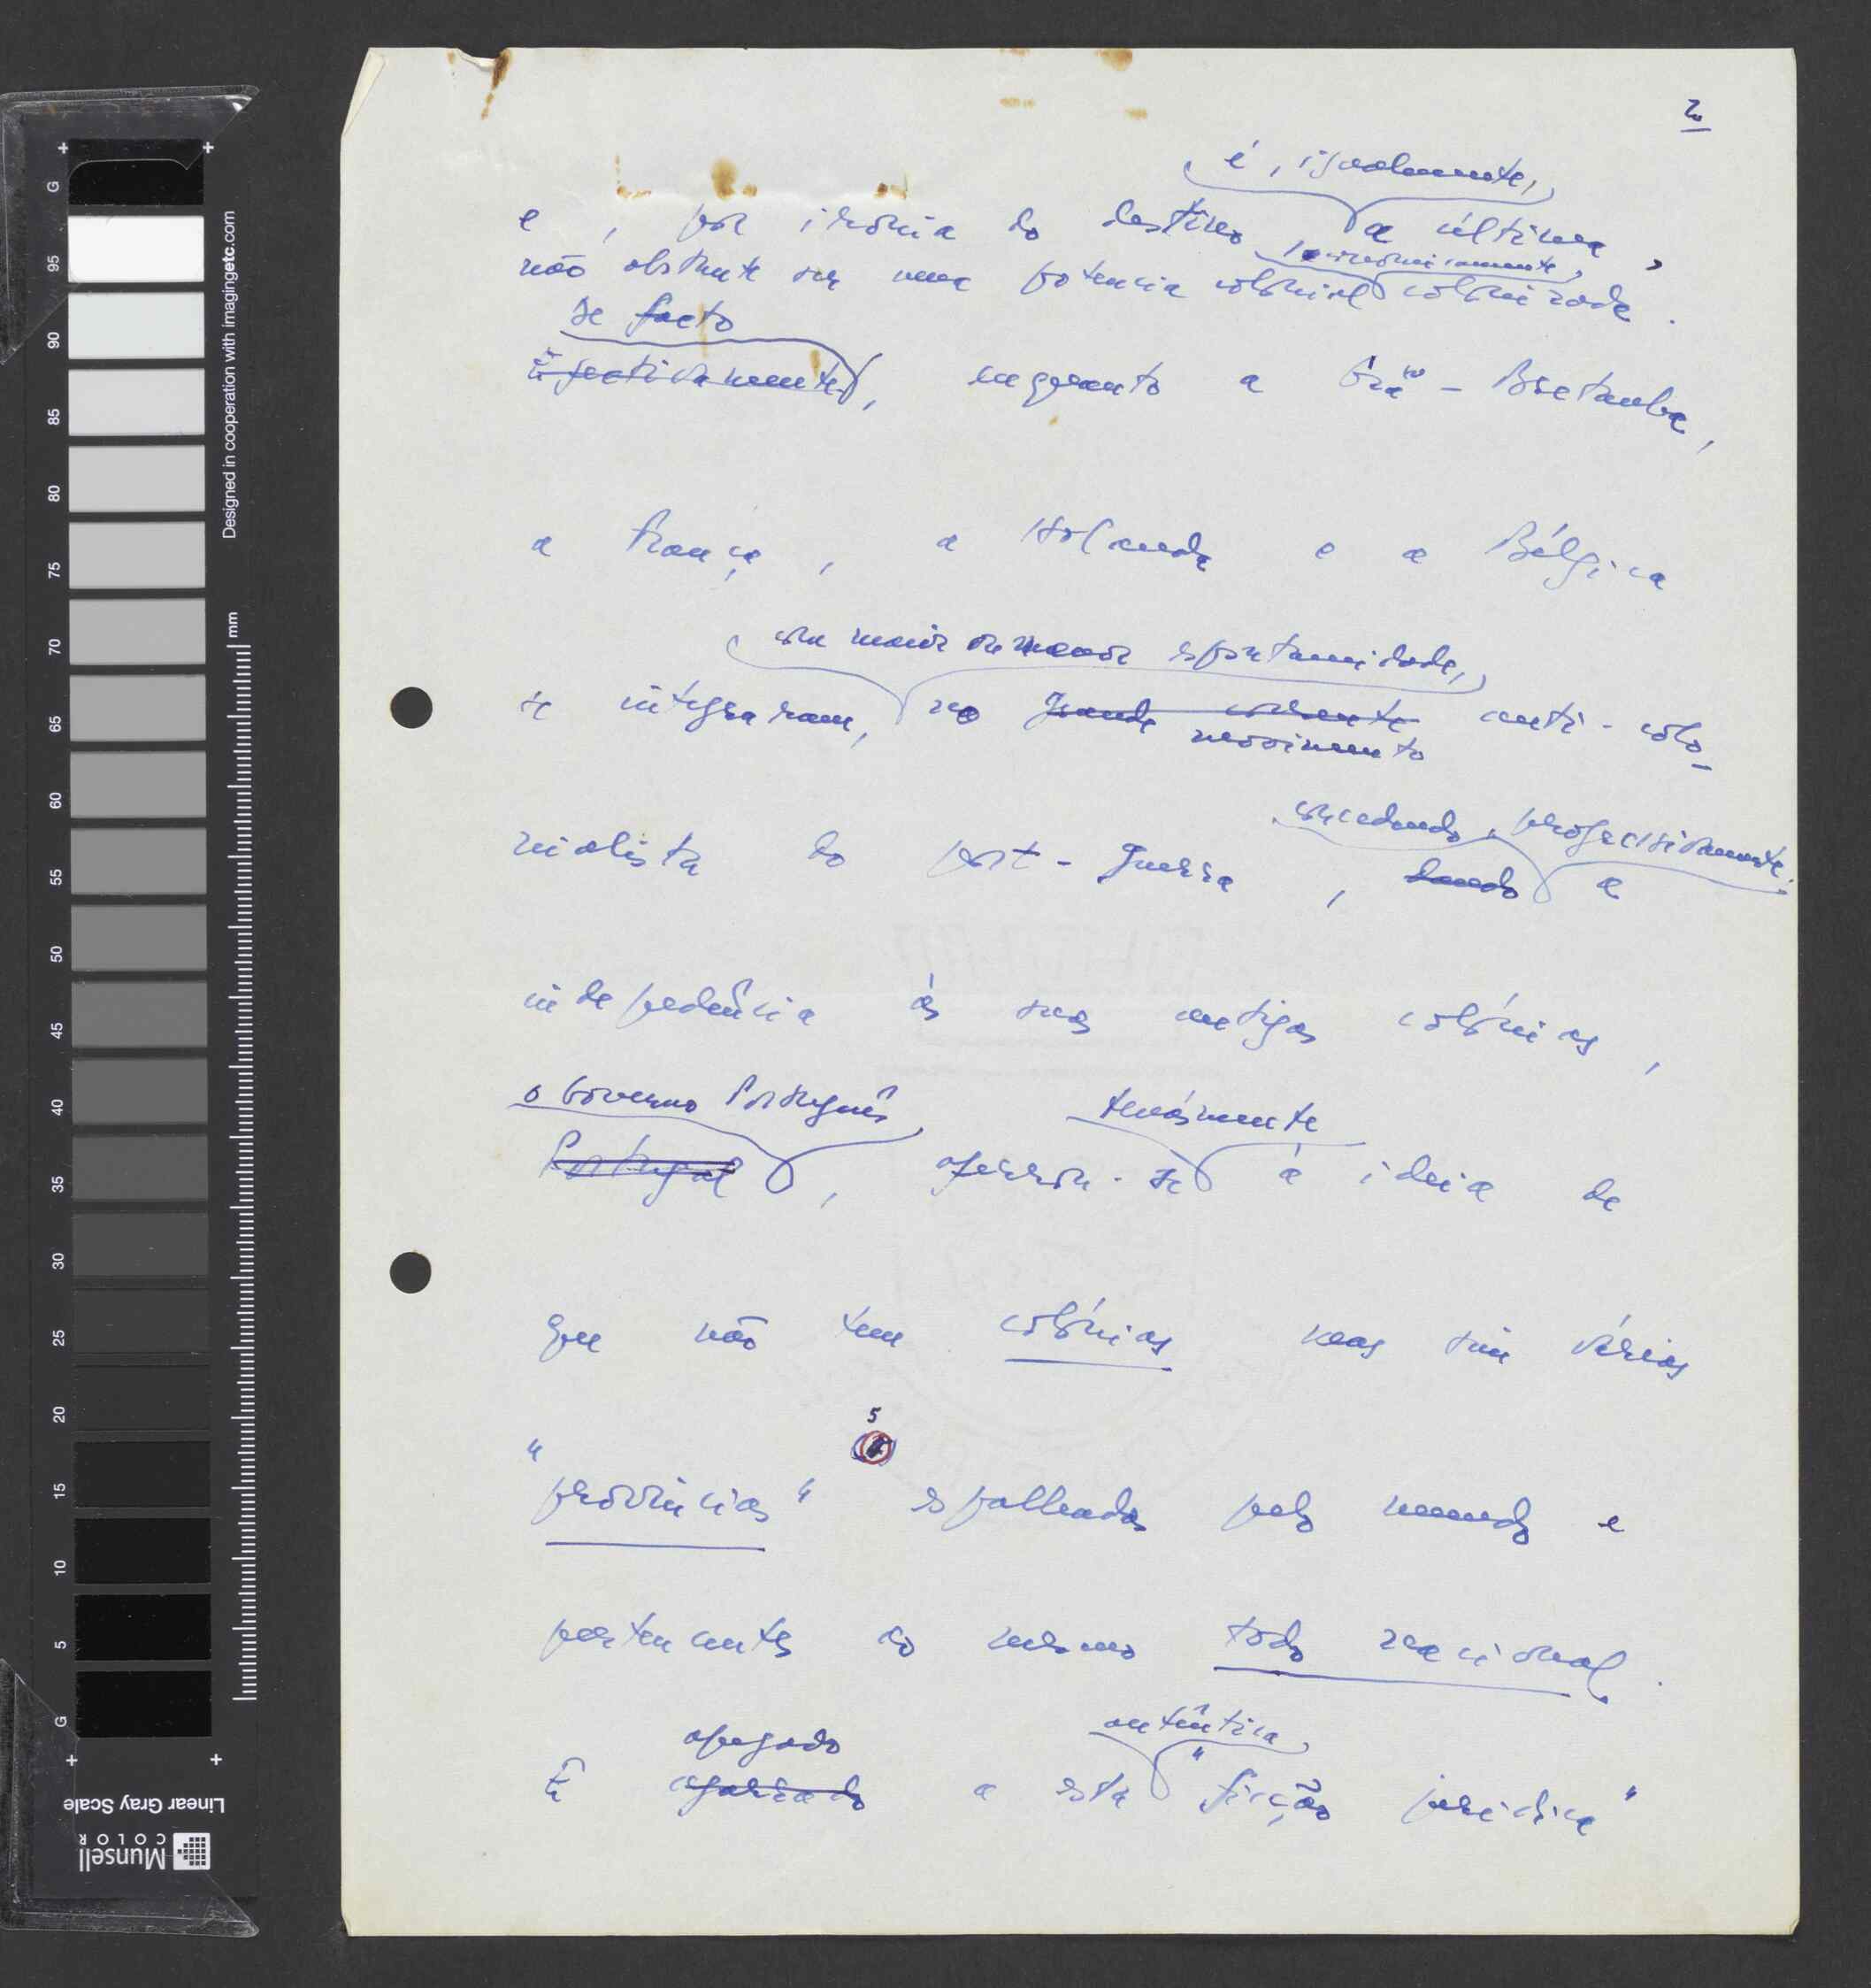 2.
é, igualmente,
e, por ironia do destino a última,
economicamente,
não obstante ser uma potencia colonial colonizada.
De facto
Efectivamente, enquanto a Grã-Bretanha,
a França, a Holanda e a Bélgica
com maior ou menor espontaneidade,
se integraram, no grande corrente anti-colo-
movimento
concedendo, progressivamente,
nialista do post-guerra, dando a
indepedência ás suas antigas colónias,
o Governo Português tenázmente
Portugal, aferrou-se á ideia de
que não tem colónias mas sim várias
5
"províncias" espalhadas pelo mundo e
pertencentes ao mesmo todo nacional.
apegado autêntica
E agarrado a esta "ficção jurídica"
G 95 90 85 80 75 70 65 60 55 50 45 40 35 30 25 20 15 10 5 G
mm
Designed in cooperation with imagingetc.com
Linear Gray Scale
Munsell
COLOR